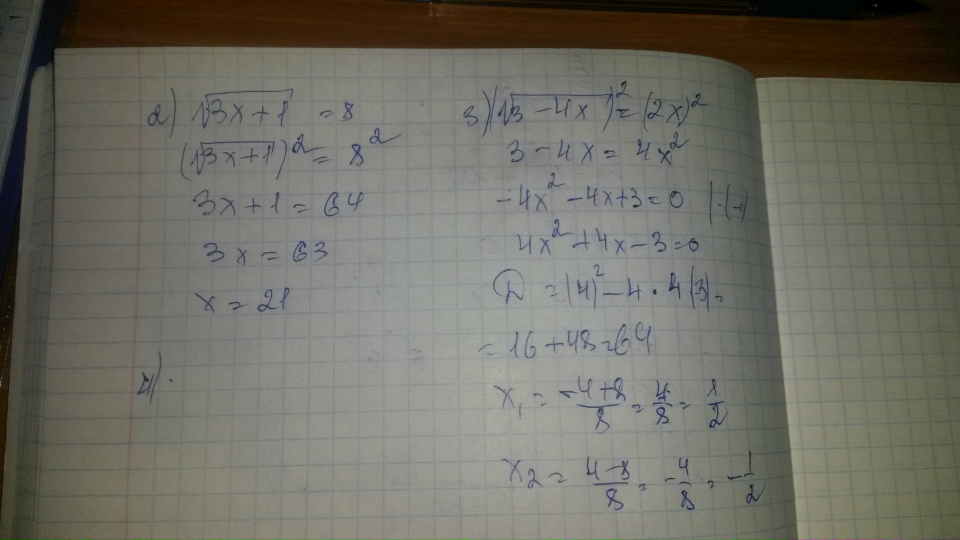 2) √3x+1 = 8
(√3x+1)² = 8²
3x+1 = 64
3x = 63
x = 21
4).
3) (√3-4x)² = (2x)²
3-4x = 4x²
-4x²-4x+3=0 |·(-1)
4x²+4x-3=0
D = (4)²-4·4(3)=
= 16+48=64
x₁ = -4+8/8 = 4/8 = 1/2
x₂ = 4-8/8 = -4/8 = -1/2